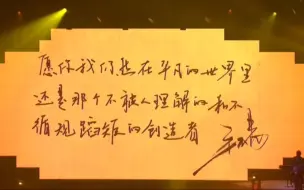 愿你我们都在平凡的世界里
还是那个不被人理解的和不
循规蹈矩的创造者